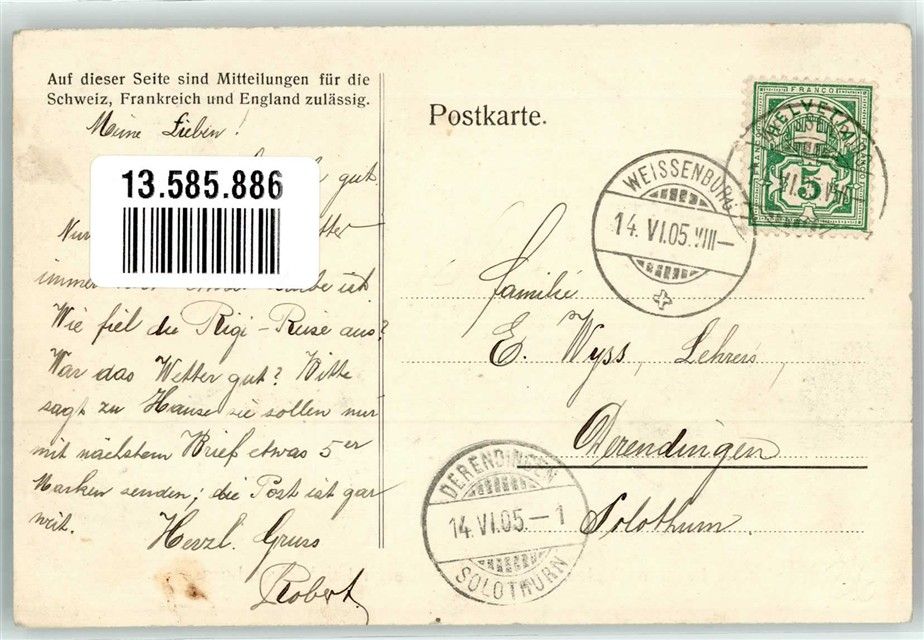 Auf dieser Seite sind Mitteilungen für die
Schweiz, Frankreich und England zulässig.
Meine Lieben!
gut.
13.585.886
immer
ist
Wie fiel die Rigi-Reise aus?
War das Wetter gut? Bitte
sagt zu Hause sie sollen mir
mit nächstem Brief etwas 5er
Marken senden; die Post ist gar
weit.
Herzl. Gruss
Robert.
Postkarte.
FRANCO
HELVETIA
5
WEISSENBURG
14. VI.05.VIII–
Familie
E. Wyss, Lehrers,
Derendingen
Solothurn.
DERENDINGEN
14.VI.05.–1
SOLOTHURN